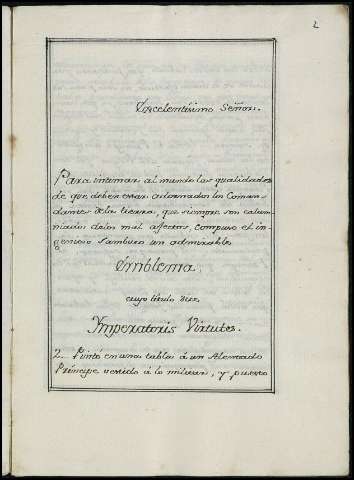 2
Excelentísimo Señor.
Para intimar al mundo las qualidades
de que deben estar adornados los Coman-
dantes de la tierra, que siempre son calum-
niados de los mal afectos, compuso el in-
genioso Sambuco un admirable
Emblema
cuyo titulo dice
Ymperatoris Virtutes.
2. Pintó en una tabla á un Alentado
Príncipe vestido á lo militar, y puesto